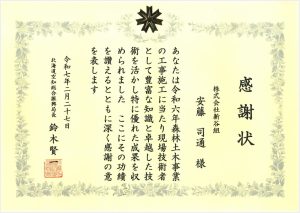 感謝状
株式会社新谷組
安藤 司通 様
あなたは令和六年森林土木事業
の工事施工に当たり現場技術者
として豊富な知識と卓越した技
術を活かし特に優れた成果を収
められました ここにその功績
を讃えるとともに深く感謝の意
を表します
令和七年二月二十七日
北海道空知総合振興局長 鈴木賢一